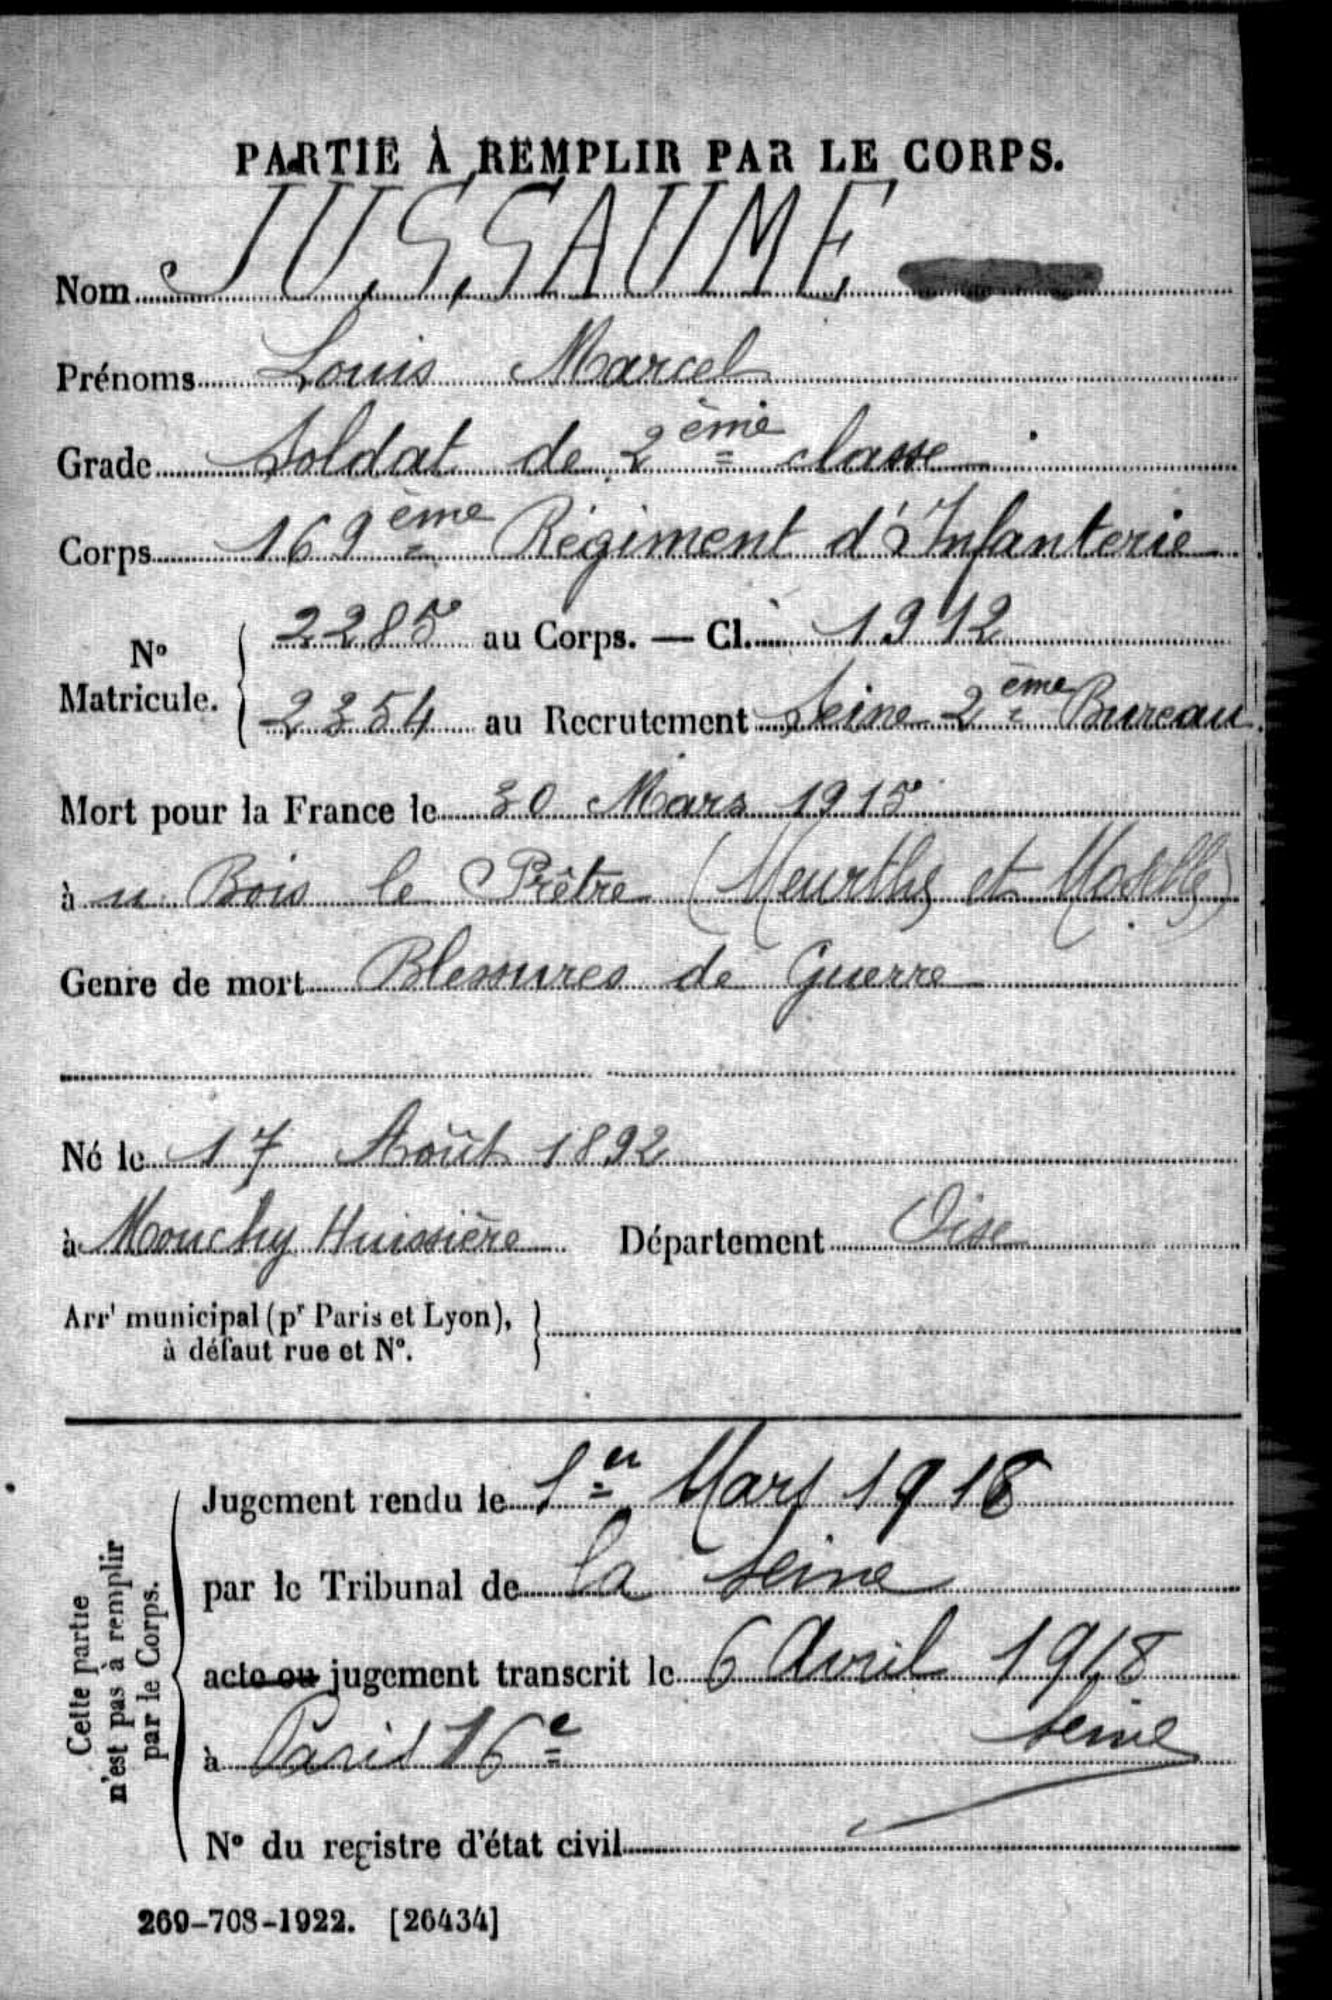 PARTIE À REMPLIR PAR LE CORPS.
Nom JUSSAUME
Prénoms Louis Marcel
Grade Soldat de 2ème classe
Corps 169ème Régiment d'Infanterie
N° Matricule. { 2285 au Corps. — Cl. 1912
2354 au Recrutement Seine 2ème Bureau
Mort pour la France le 30 Mars 1915
à u Bois le Prêtre (Meurthe et Moselle)
Genre de mort Blessures de Guerre
Né le 17 Août 1892
à Mouchy Huissière Département Oise
Arrt municipal (pr Paris et Lyon),
à défaut rue et N°.
Cette partie n'est pas à remplir par le Corps.
Jugement rendu le 1er Mars 1918
par le Tribunal de la Seine
acte ou jugement transcrit le 6 Avril 1918
à Paris 16e Seine
N° du registre d'état civil
269-708-1922. [26434]